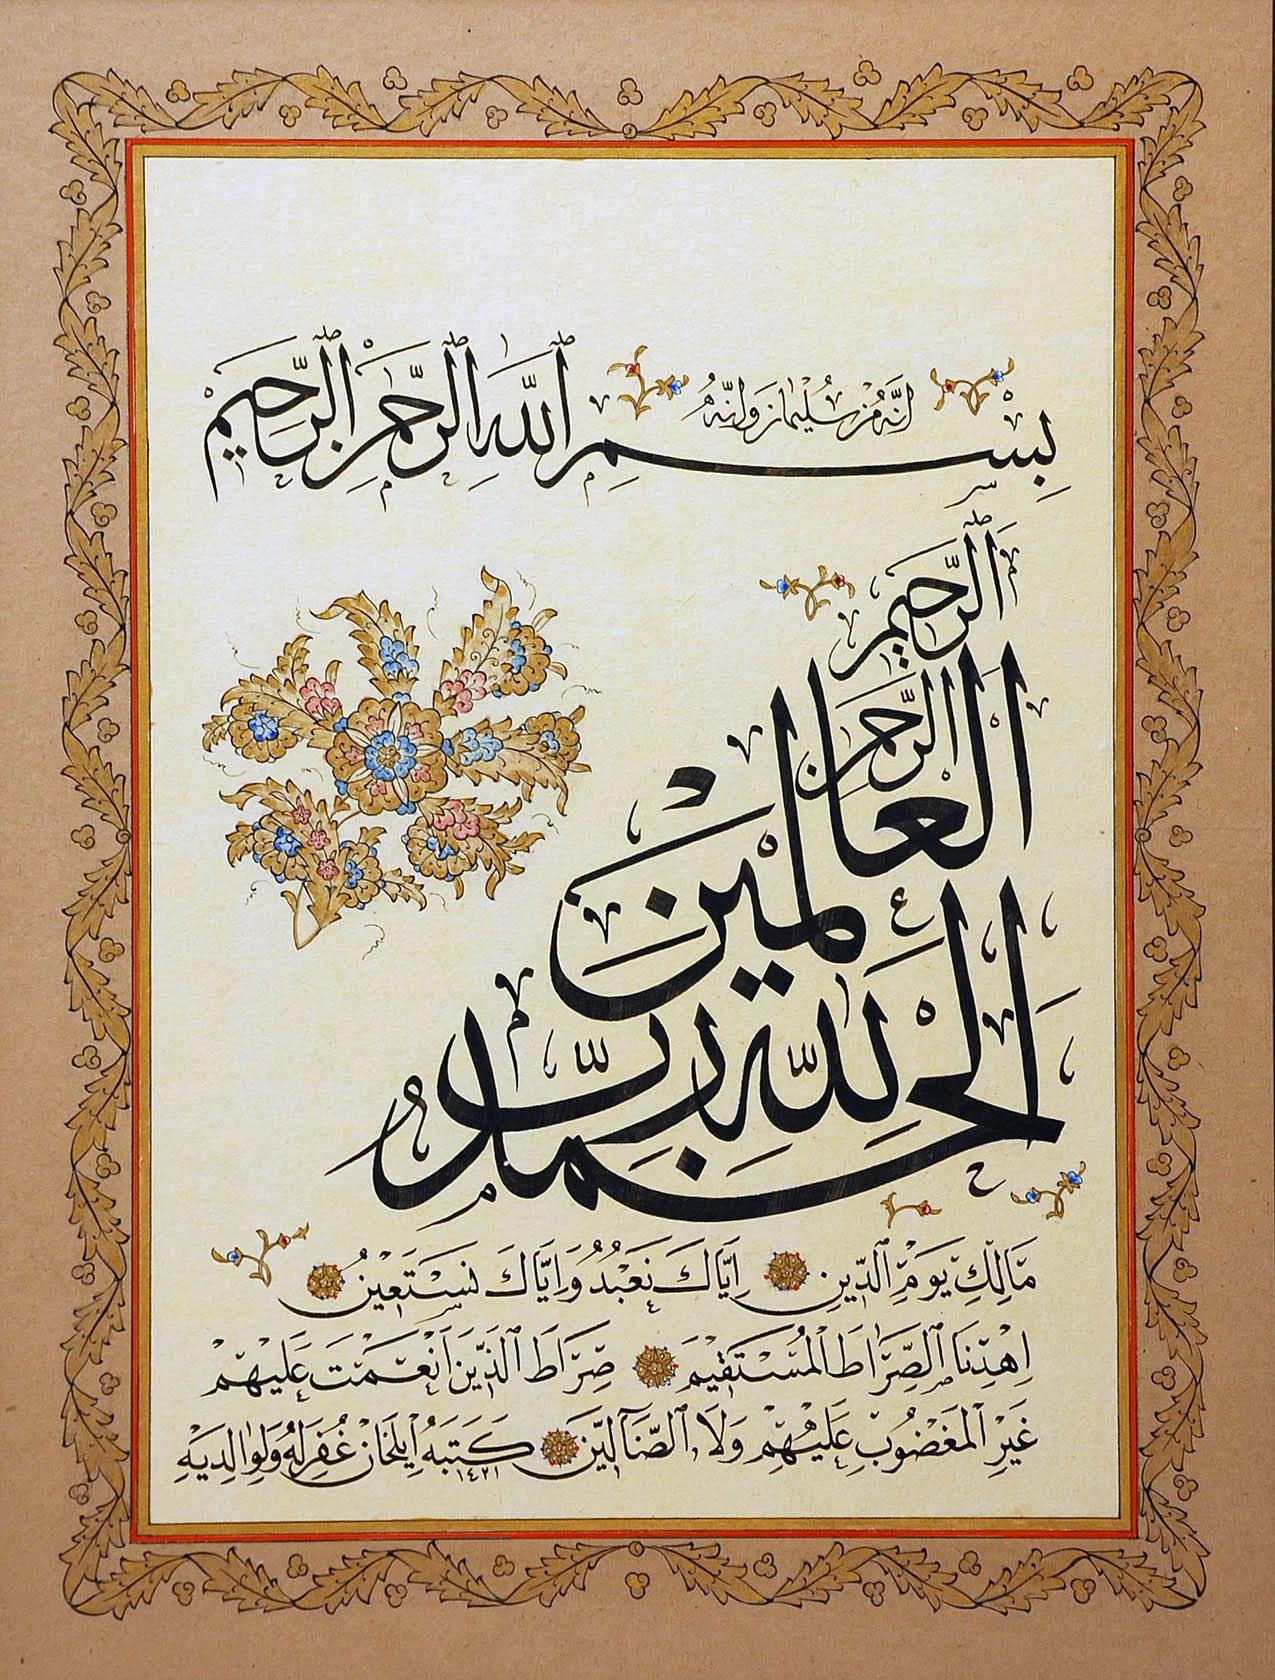 إنه من سليمان وإنه
بسم الله الرحمن الرحيم
الحمد لله رب
العالمين
الرحمن
الرحيم
مالك يوم الدين إياك نعبد وإياك نستعين
اهدنا الصراط المستقيم صراط الذين أنعمت عليهم
غير المغضوب عليهم ولا الضآلين كتبه إيلخان غفر له ولوالديه
١٤٢١